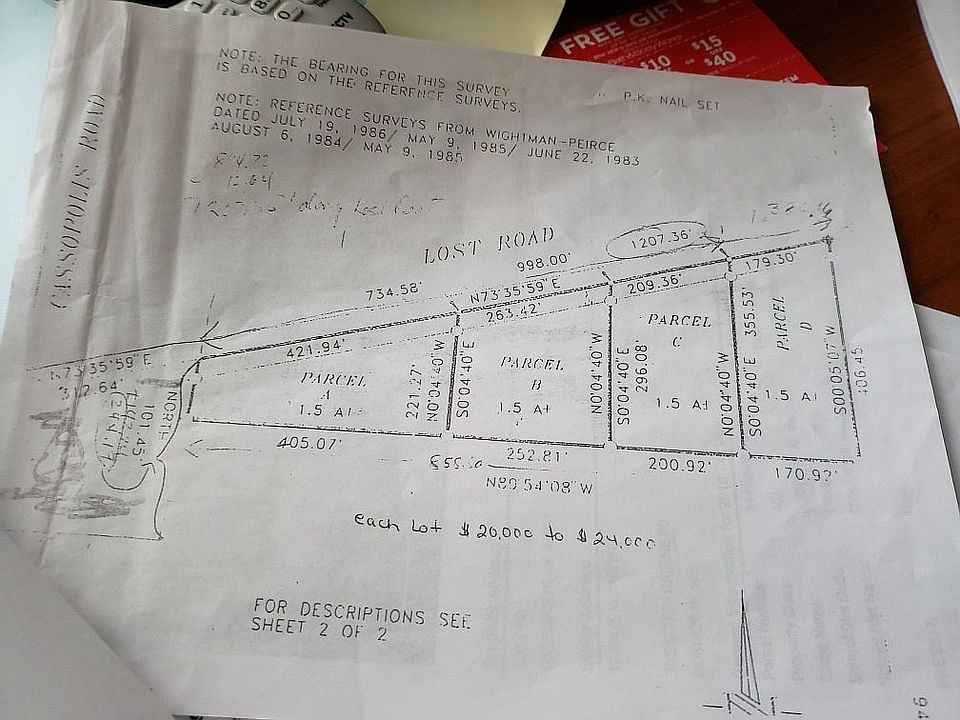 FREE GIFT
$15
$10 or $40
NOTE: THE BEARING FOR THIS SURVEY
IS BASED ON THE REFERENCE SURVEYS.
P.K. NAIL SET
NOTE: REFERENCE SURVEYS FROM WIGHTMAN-PEIRCE
DATED JULY 19, 1986/ MAY 9, 1985/ JUNE 22, 1983
AUGUST 6, 1984/ MAY 9, 1985
CASSOPOLIS ROAD
along Lost
LOST ROAD
1207.36'
998.00'
734.58'
N73°35'59"E
179.30'
209.36'
263.42'
421.94'
N73°35'59"E
312.64'
NORTH
101.45
PARCEL
A
1.5 A±
221.27'
N0°04'40"W
S0°04'40"E
PARCEL
B
1.5 A±
N0°04'40"W
S0°04'40"E
296.08'
PARCEL
C
1.5 A±
N0°04'40"W
S0°04'40"E 355.53'
PARCEL
D
1.5 A±
S00°05'07"W
406.45
405.07'
252.81'
200.92'
170.92'
N89°54'08"W
each Lot $20,000 to $24,000
FOR DESCRIPTIONS SEE
SHEET 2 OF 2